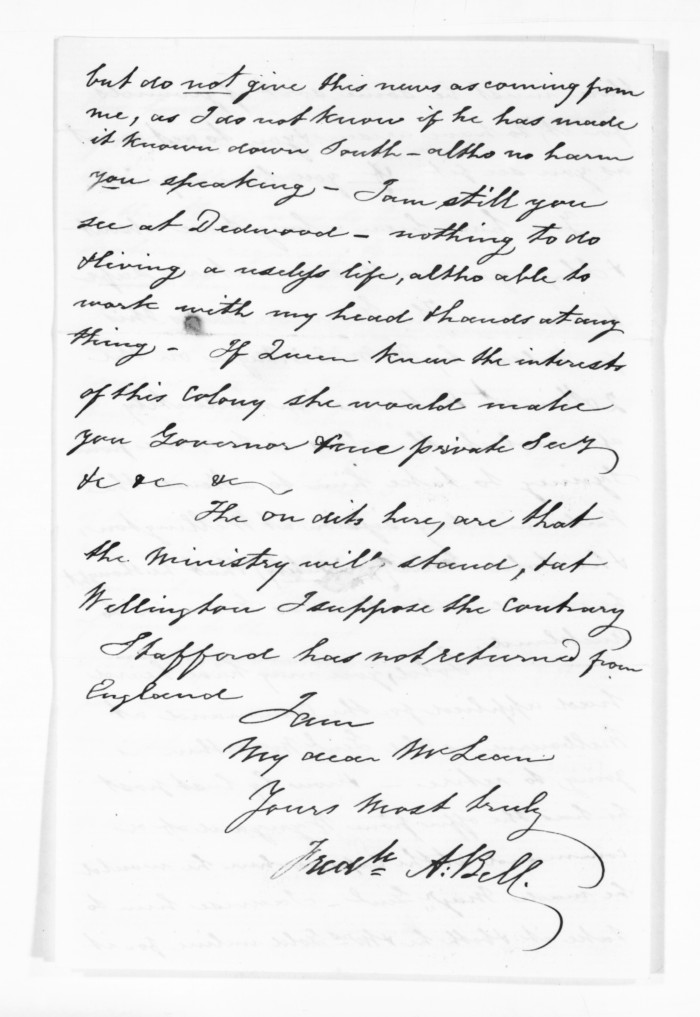 but do not give this news as coming from
me, as I do not know if he has made
it known down South – altho no harm
you speaking – I am still you
see at Dedwood – nothing to do
& living a useless life, altho able to
work with my head & hands at any
thing – If Queen knew the interests
of this Colony she would make
you Governor & me private Secy
&c &c &c
The on dits here, are that
the Ministry will stand, & at
Wellington I suppose the contrary
Stafford has not returned from
England
I am
My dear McLean
Yours most truly
Fredk A. Bell.